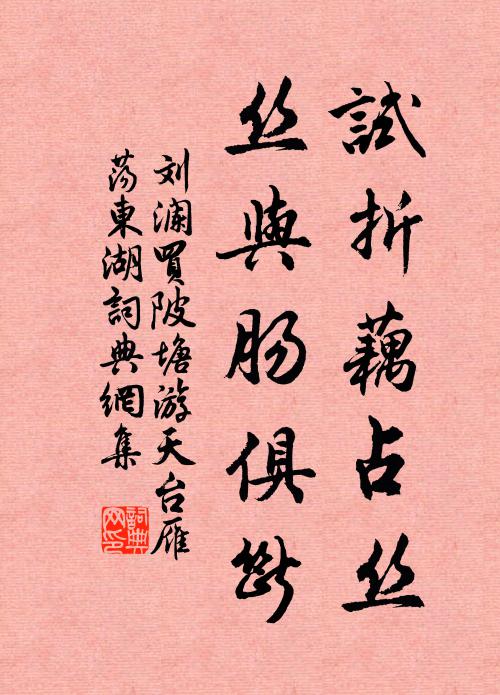 試折藕占丝
丝與肠俱断
刘澜買陂塘游天台雁
荡東湖詞典網集
詞典
网印